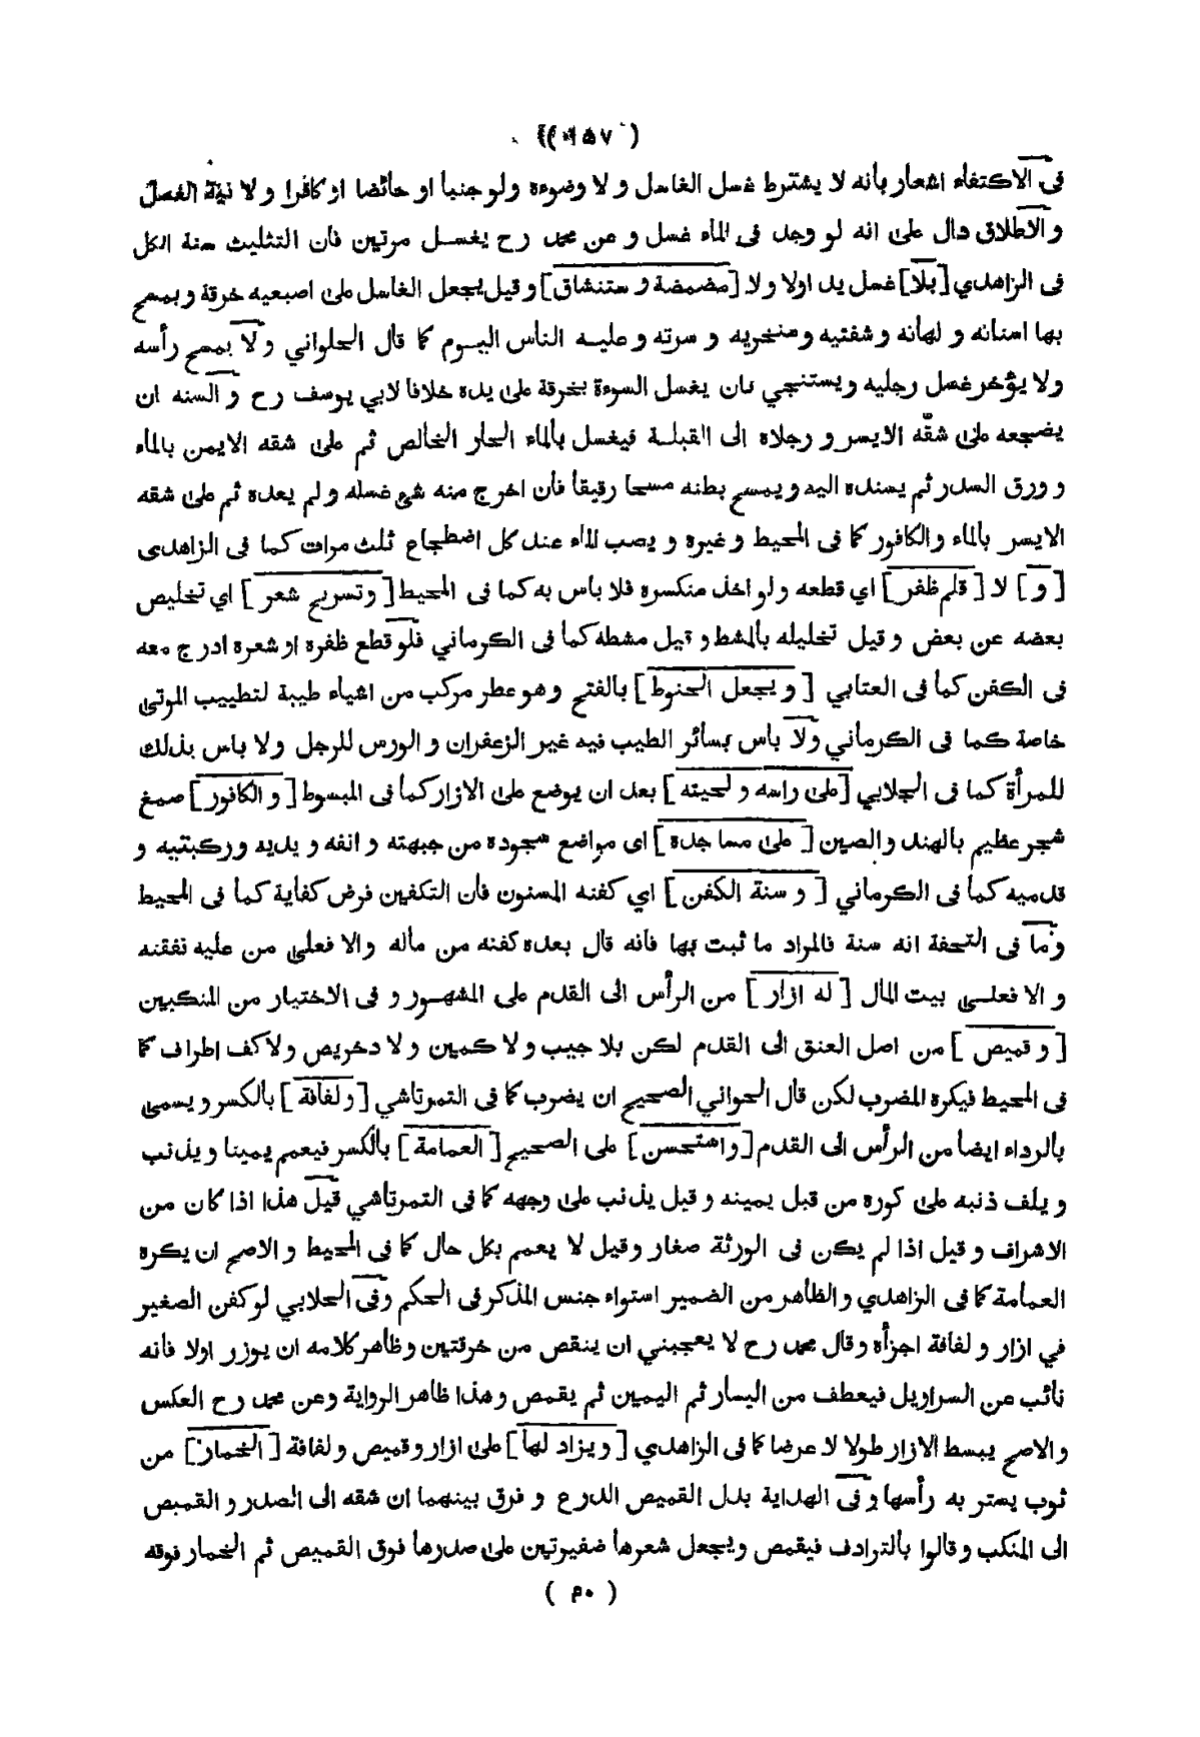 ( ١٥٧ )
فى الاكتفاء اشعار بأنه لا يشترط غسل الغاسل و لا وضوءه ولو جنبا او حائضا او كافرا و لا نية الغسل
و الاطلاق دال على انه لو وجد فى الماء غسل و عن محمد رح يغسل مرتين فان التثليث سنة الكل
فى الزاهدي [بلا] غسل يد اولا ولا [مضمضة و ستنشاق] و قيل يجعل الغاسل على اصبعيه خرقة و يمسح
بها اسنانه و لهاته و شفتيه و منخريه و سرته و عليه الناس اليوم كما قال الحلواني ولا يمسح رأسه
ولا يؤخر غسل رجليه ويستنجي بان يغسل السوءة بخرقة على يده خلافا لابي يوسف رح و السنه ان
يضجعه على شقّه الايسر و رجلاه الى القبلة فيغسل بالماء الحار الخالص ثم على شقه الايمن بالماء
و ورق السدر ثم يسنده اليه و يمسح بطنه مسحا رقيقا فأن اخرج منه شئ غسله و لم يعده ثم على شقه
الايسر بالماء والكافور كما فى المحيط و غيره و يصب الماء عند كل اضطجاع ثلث مرات كما فى الزاهدى
[ و ] لا [ قلم ظفر ] اي قطعه ولو اخذ منكسره فلا باس به كما فى المحيط [ وتسريح شعر ] اي تخليص
بعضه عن بعض و قيل تخليله بالمشط و قيل مشطه كما فى الكرماني فلو قطع ظفره او شعره ادرج معه
فى الكفن كما فى العتابي [ و يجعل الحنوط ] بالفتح وهو عطر مركب من اشياء طيبة لتطييب الموتى
خاصة كما فى الكرماني ولا باس بسائر الطيب فيه غير الزعفران و الورس للرجل ولا باس بذلك
للمرأة كما فى الجلابي [على راسه و لحيته ] بعد ان يوضع على الازار كما فى المبسوط [ و الكافور ] صمغ
شجر عظيم بالهند والصين [ على مساجده ] اى مواضع سجوده من جبهته و انفه و يديه و ركبتيه و
قدميه كما فى الكرماني [ و سنة الكفن ] اي كفنه المسنون فأن التكفين فرض كفاية كما فى المحيط
وما فى التحفة انه سنة فالمراد ما ثبت بها فانه قال بعده كفنه من ماله والا فعلى من عليه نفقته
و الا فعلى بيت المال [ له ازار ] من الرأس الى القدم على المشهور و فى الاختيار من المنكبين
[ و قميص ] من اصل العنق الى القدم لكن بلا جيب ولا كمين و لا دخريص ولا كف اطراف كما
فى المحيط فيكره المضرب لكن قال الحواني الصحيح ان يضرب كما فى التمرتاشي [ و لفافة ] بالكسر و يسمى
بالرداء ايضا من الرأس الى القدم [ واستحسن ] على الصحيح [ العمامة ] بالكسر فيعمم يمينا و يذنب
و يلف ذنبه على كوره من قبل يمينه و قيل يذنب على وجهه كما فى التمرتاشي قيل هذا اذا كان من
الاشراف و قيل اذا لم يكن فى الورثة صغار وقيل لا يعمم بكل حال كما فى المحيط و الاصح ان يكره
العمامة كما فى الزاهدي و الظاهر من الضمير استواء جنس المذكر فى الحكم وفى الجلابي لو كفن الصغير
في ازار و لفافة اجزأه وقال محمد رح لا يعجبني ان ينقص من خرقتين وظاهر كلامه ان يوزر اولا فانه
نائب عن السراويل فيعطف من اليسار ثم اليمين ثم يقمص و هذا ظاهر الرواية وعن محمد رح العكس
و الاصح يبسط الازار طولا لا عرضا كما فى الزاهدي [ و يزاد لها ] على ازار و قميص و لفافة [ الخمار ] من
ثوب يستر به رأسها و فى الهداية بدل القميص الدرع و فرق بينهما ان شقه الى الصدر و القميص
الى المنكب و قالوا بالترادف فيقمص ويجعل شعرها ضفيرتين على صدرها فوق القميص ثم الخمار فوقه
( ٤٠ )